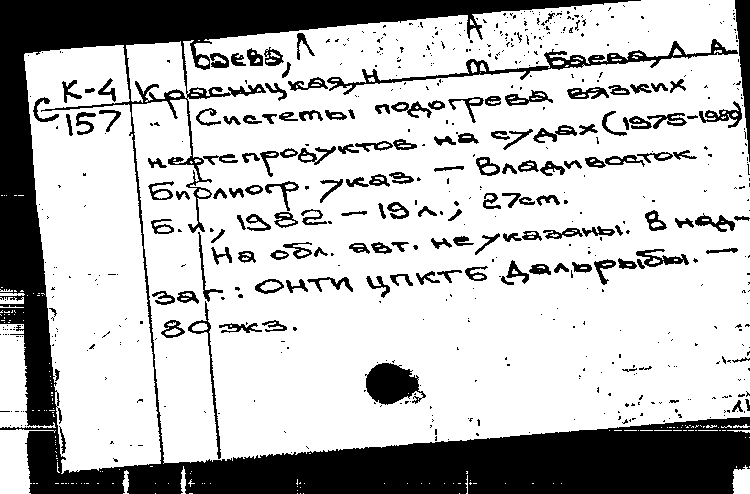 Баева, Л А
С К-4 Красницкая, Н т, Баева, Л А
157 " Системы подогрева вязких
нефтепродуктов на судах (1975-1980)
Библиогр. указ. — Владивосток:
Б.и., 1982. — 19 л.; 27 cm.
На обл. авт. не указаны. В над-
заг.: ОНТИ ЦПКТБ Дальрыбы. —
80 экз.